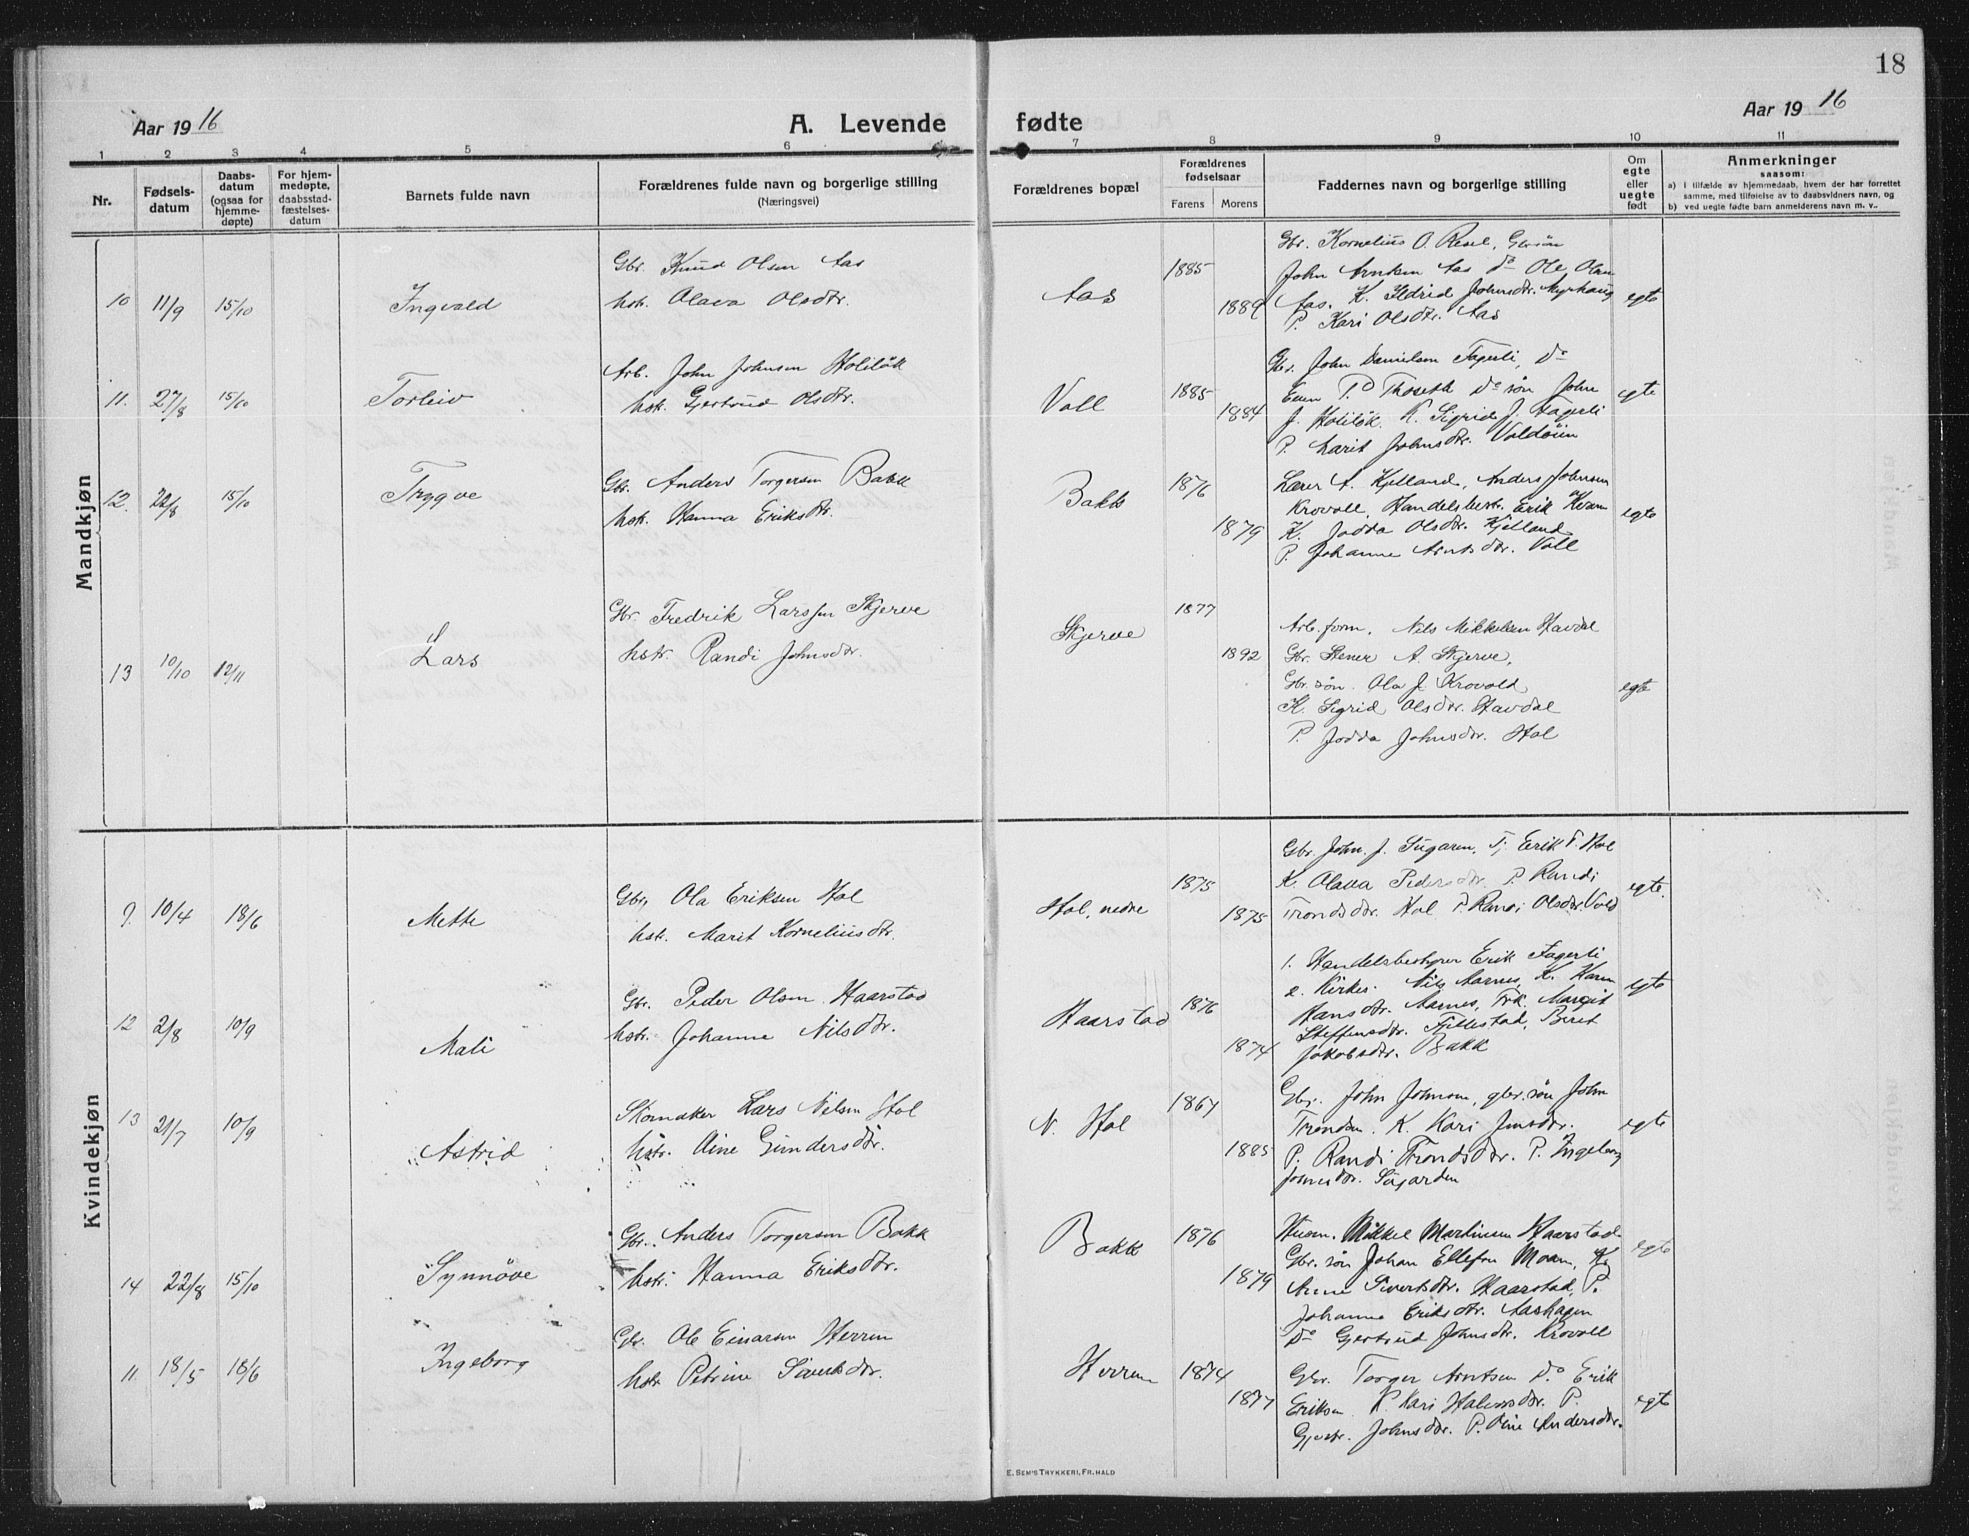 18
Aar 1916
A. Levende fødte
Aar 1916
1 2 3 4 5 6 7 8 9 10 11
Nr.
Fødsels-
datum
Daabs-
datum
(ogsaa for
hjemme-
døpte)
For hjem-
medøpte,
daabsstad-
fæstelses-
datum
Barnets fulde navn
Forældrenes fulde navn og borgerlige stilling
(Næringsvei)
Forældrenes bopæl
Forældrenes
fødselsaar
Farens Morens
Faddernes navn og borgerlige stilling
Om
egte
eller
uegte
født
Anmerkninger
saasom:
a) i tilfælde av hjemmedaab, hvem der har forrettet
samme, med tilføielse av to daabsvidners navn, og
b) ved uegte fødte barn anmelderens navn m. v..
Mandkjøn
10 11/9 15/10 Ingvald
Gbr. Knud Olsen Aas
hstr. Olava Olsdtr.
Aas 1885 1889
Gbr. Kornelius O. Resel, Gbrsøn
John Arntsen Aas Do Ole Olsen
Aas. K. Ildrid Johnsdtr. Myrhaug
P. Kari Olsdtr. Aas
egte
11. 27/8 15/10 Torleiv
Arb. John Johnsen Holiløk
hstr. Gjertrud Olsdtr.
Voll 1885 1884
Gbr. John Danielsen Fagerli, Do
Even P. Thoseth Do søn John
J. Holiløk. K. Sigrid J. Fagerli
P. Marit Johnsdtr. Voldøien
egte
12. 22/8 15/10 Trygve
Gbr. Anders Torgersen Bakk
hstr. Hanna Eriksdtr.
Bakk 1876 1879
Lærer A. Kjelland, Anders Johnsen
Krovoll, Handelsbest. Erik Kvam
K. Jodda Olsdtr. Kjelland
P. Johanne Arntsdtr. Voll
egte
13 10/10 12/11 Lars
Gbr. Fredrik Larssen Skjerve
hstr. Randi Johnsdtr.
Skjerve 1877 1892
Arb.form. Nils Mikkelsen Havdal
Gbr. Stener A. Skjerve,
Gbr. søn. Ola J. Krovold
K. Sigrid Olsdtr. Havdal
P. Jodda Johnsdtr. Hol
egte
Kvindekjøn
9. 10/4 18/6 Mette
Gbr. Ola Eriksen Hol
hstr. Marit Korneliusdtr.
Hol, nedre 1875 1875
Gbr. John. J. Sugaren, Tj. Erik T. Hol
K. Olava Pedersdtr. P. Randi
Trondsdtr. Hol P. Randi Olsdtr. Vold
egte.
12 2/8 10/9 Mali
Gbr. Peder Olsen Haarstad
hstr. Johanne Nilsdtr.
Haarstad 1876 1874
1. Handelsbestyrer Erik Fagerli
2. Kirkes. Nils Aarnes, K. Karen
Hansdtr. Aarnes, Frk. Margit
Steffensdtr. Fjellestad, Beret
Jakobsdtr. Bakk
egte
13 21/7 10/9 Astrid
Skomaker Lars Nilsen Hol
hstr. Aine Gundersdtr.
N. Hol 1867 1885
Gbr. John Johnsen, gbr. søn John
Trondsen. K. Kari Jensdtr.
P. Randi Trondsdtr. P. Ingeborg
Johnsdtr. Sugarden
egte
14 22/8 15/10 Synnøve
Gbr. Anders Torgersen Bakk
hstr. Hanna Eriksdtr.
Bakk 1876 1879
Husm. Mikkel Martinsen Haarstad
Gbr. søn Johan Ellefsen Moan, K.
Anne Sivertsdtr. Haarstad, P.
Johanne Eriksdtr. Aashagen
Do Gjertrud Johnsdtr. Krovoll
egte
11 18/5 18/6 Ingeborg
Gbr. Ole Einarsen Herrem
hstr. Petrine Sivertsdtr.
Herrem 1874 1877
Gbr. Torger Arntsen Do Erik
Eriksen K. Kari Halvorsdtr. P.
Gjertr. Johnsdtr. P. Oline Andersdtr.
egte
E. SEM'S TRYKKERI, FR.HALD